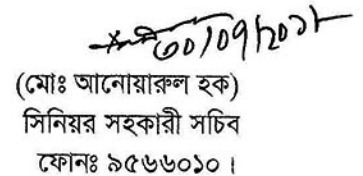 ৩০/০৭/২০১৮
(মোঃ আনোয়ারুল হক)
সিনিয়র সহকারী সচিব
ফোনঃ ৯৫৬৬০১০।